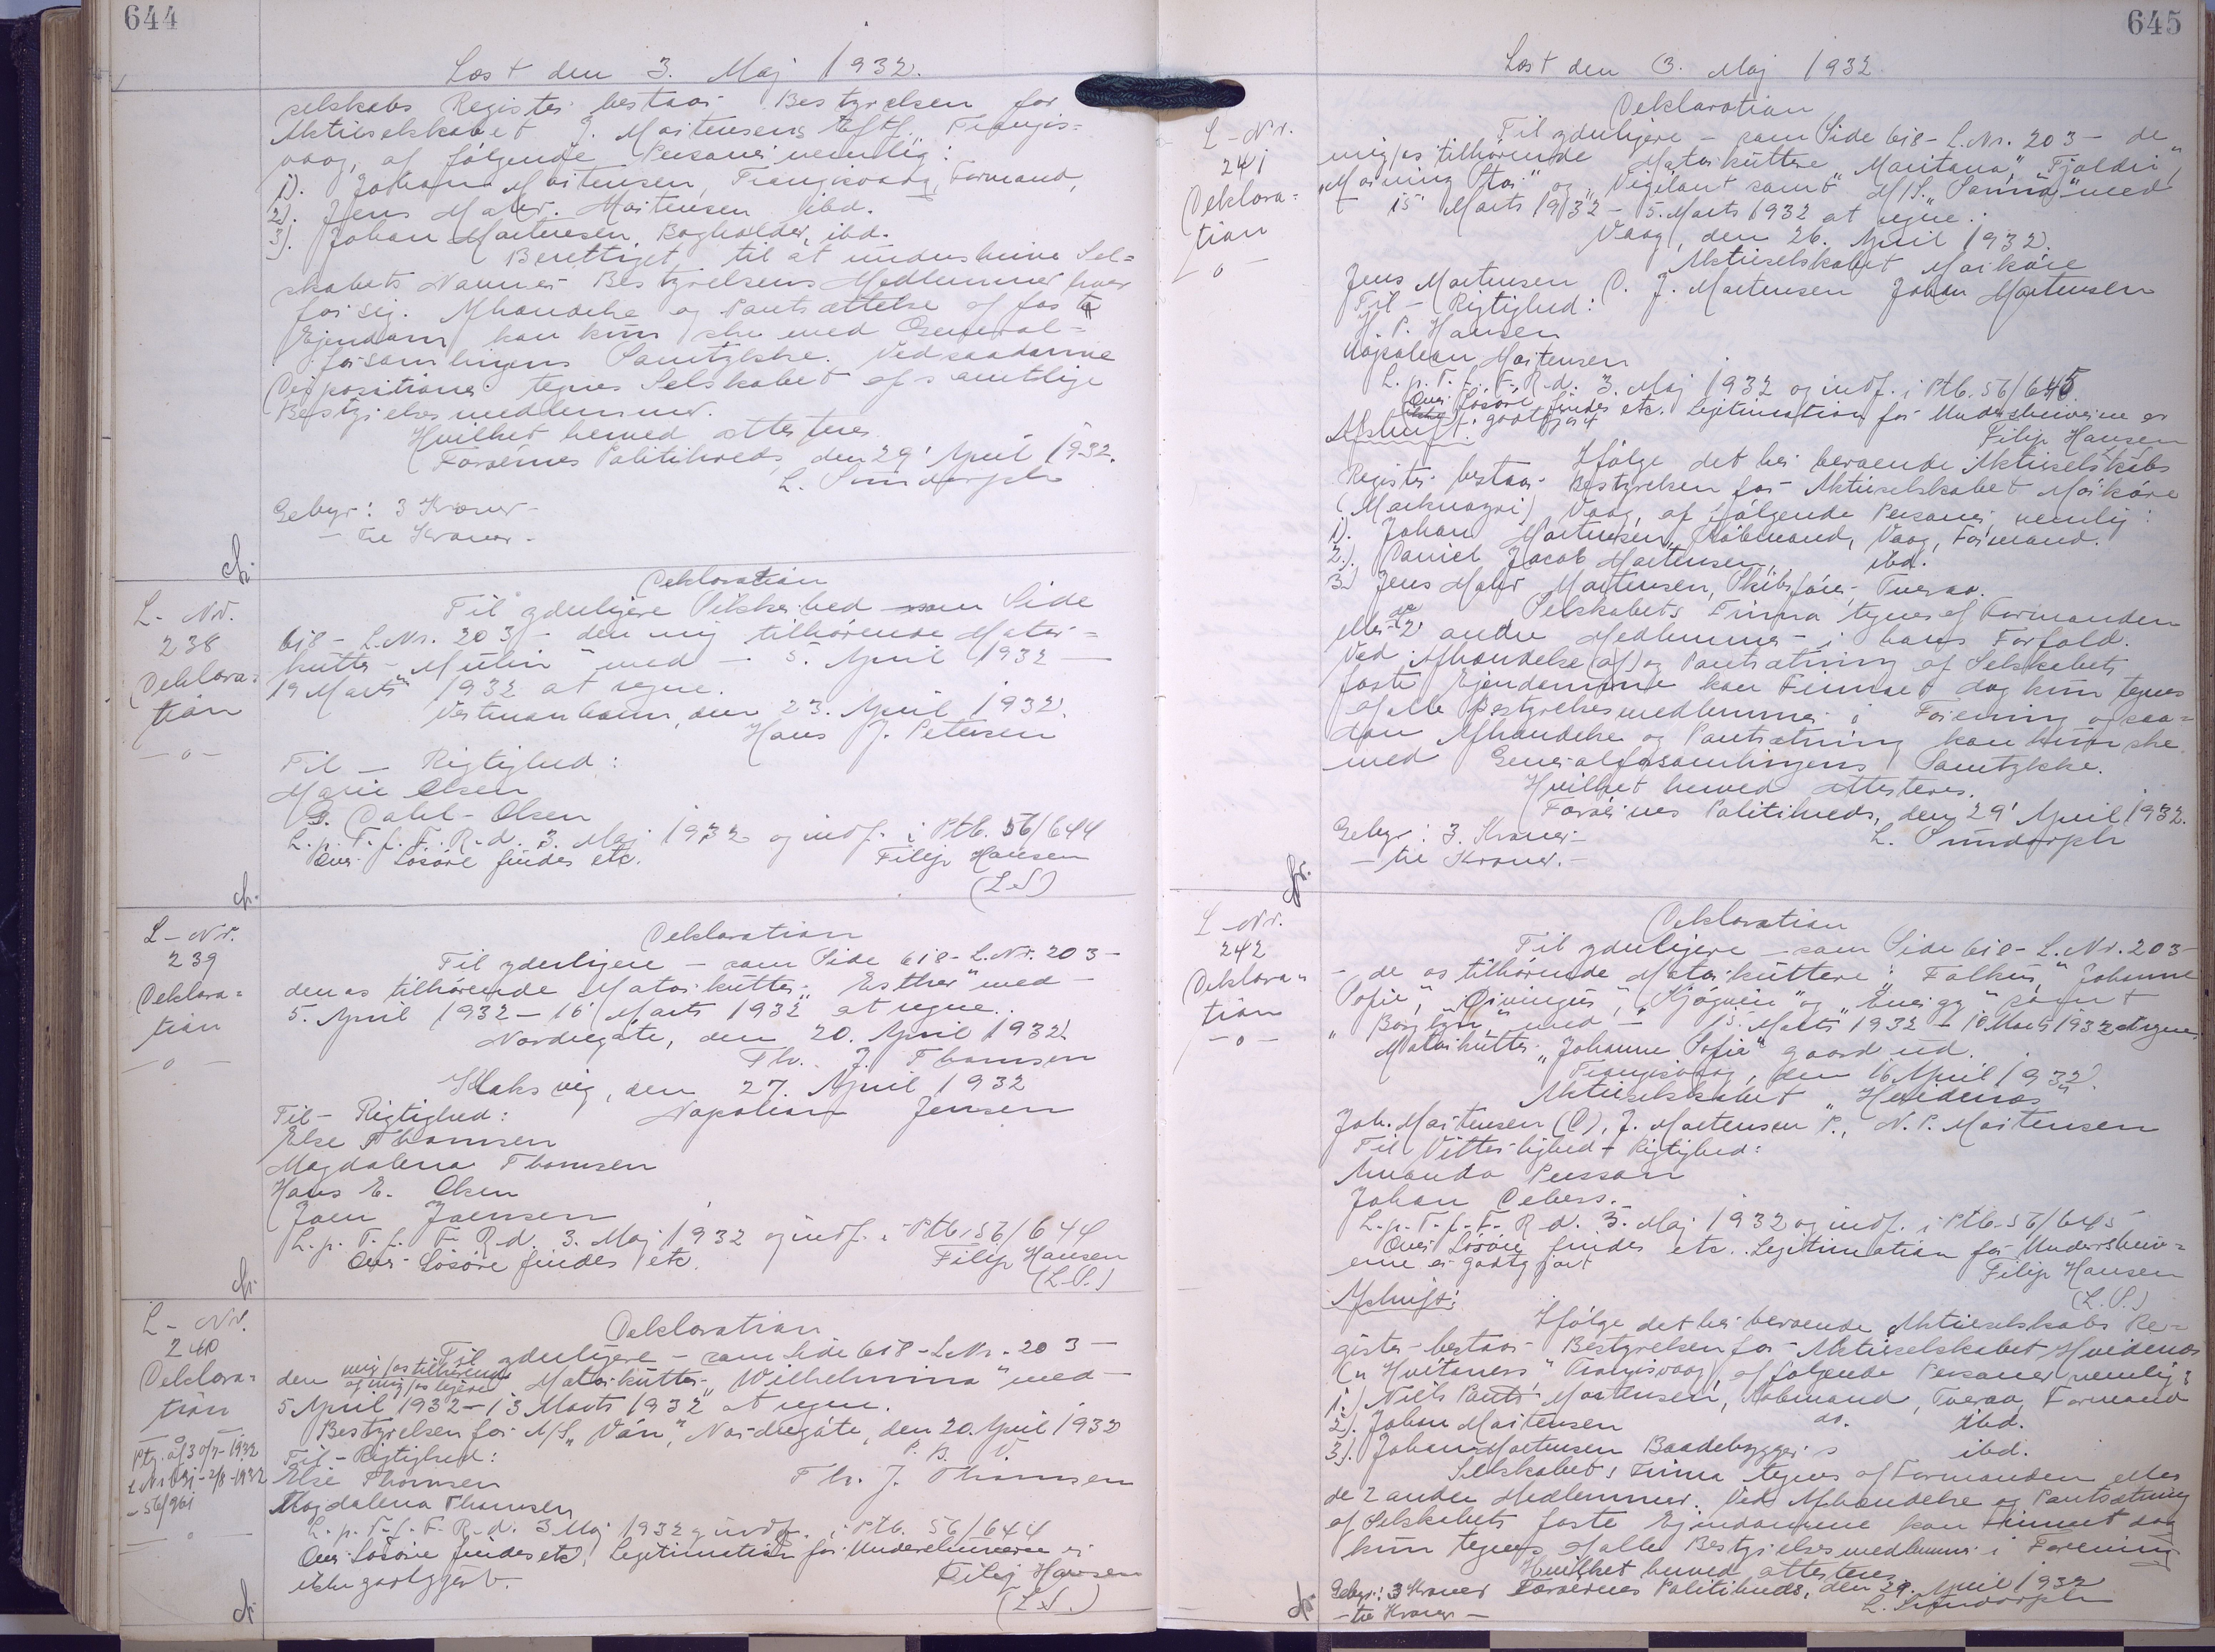 644
Læst den 3. Maj 1932.
selskabs Register bestaar Bestyrelsen for
Aktieselskabet J. Mortensens Eftf., Trangis=
vaag, af følgende Personer nemlig:
1). Johan Mortensen, Trangisvaag, Formand,
2). Jens Mohr. Mortensen ibd.
3). Johan Mortensen, Bogholder, ibd.
Berettiget til at underskrive Sel=
skabets Navn er Bestyrelsens Medlemmer hver
for sig. Afhændelse og Pantsættelse af faste
Ejendom kan kun ske med General=
forsamlingens Samtykke. Ved saadanne
Dispositioner tegnes Selskabet af samtlige
Bestyrelsesmedlemmer.
Hvilket herved attesteres
Færøernes Politikreds, den 29' April 1932.
L. Sundorph
Gebyr: 3 Kroner -
- tre Kroner -
L- Nr.
238
Deklara=
tion
- o -
Deklaration
Til yderligere Sikkerhed - som Side
618 - L.Nr. 203 - den mig tilhørende Motor=
kutter "Mulin" med - 5. April 1932 -
19 Marts 1932 at regne.
Vestmanhavn, den 23. April 1932.
Hans J. Petersen
Til - Rigtighed:
Marie Olsen
G. Dahl-Olsen
L. p. T. f. F. R. d. 3. Maj 1932 og indf. i Ptb. 56/644
Over Løsøre findes etc. Filip Hansen
(L.S)
L - Nr.
239
Deklara=
tion
- o -
Deklaration
Til yderligere - som Side 618 - L.Nr. 203 -
den os tilhørende Motorkutter "Esther" med -
5. April 1932 - 16 Marts 1932 at regne.
Nordregøte, den 20. April 1932.
Thv. J. Thomsen
Klaksvig, den 27. April 1932
Til - Rigtighed: Napoleon Jensen
Else Thomsen
Magdalena Thomsen
Hans E. Olsen
Joen Joensen
L. p. T. f. F. R. d. 3. Maj 1932 og indf. i Ptb. 56/644
Over Løsøre findes etc. Filip Hansen
(L.S.)
L - Nr.
240
Deklara=
tion
- o -
Deklaration
Til yderligere - som Side 618 - L.Nr. 203 -
mig/os tilhørende
den af mig/os ejere Motorkutter "Wilhelmina" med -
5 April 1932 - 13 Marts 1932 at regne.
Bestyrelsen for A/S "Ván", Nordregøte, den 20. April 1932
P. B. V.
Til - Rigtighed:
Else Thomsen Th. J. Thomsen
Magdalena Thomsen
L. p. T. f. F. R. d. 3 Maj 1932 og indf. i Ptb. 56/644
Over Løsøre findes etc. Legitimation for Underskriverne er
ikke godtgjort. Filip Hansen
(L.S.)
645
Læst den 3. Maj 1932.
L - Nr.
241
Deklara=
tion
- o -
Deklaration
Til yderligere - som Side 618 - L.Nr. 203 - de
mig/os tilhørende Motorkuttere "Maritana", "Fjaldri",
"Morning Star" og "Vigilant" samt M/S. "Sanna" med
- 15 Marts 1932 - 5. Marts 1932 at regne.
Vaag, den 26. April 1932.
Aktieselskabet Morkøre
Jens Mortensen D. J. Mortensen Johan Mortensen
Til - Rigtighed:
H. P. Hansen
Napolean Mortensen
L. p. T. f. F. R. d. 3. Maj 1932 og indf. i Ptb. 56/645.
Over Løsøre findes etc. Legitimation for Underskriverne er
godtgjort Filip Hansen
Afskrift:
Ifølge det her beroende Aktieselskabs
Register bestaar Bestyrelsen for Aktieselskabet Morkøre
Vaag, af følgende Personer, nemlig:
1). Johan Mortensen, Købmand, Vaag, Formand.
2). Daniel Jacob Mortensen, ibd.
3.) Jens Mohr Mortensen, Skibsfører, Tveraa.
Selskabets Firma tegnes af Formanden
eller de 2 andre Medlemmer i hans Forfald.
Ved Afhændelse (af) og Pantsætning af Selskabets
faste Ejendomme kan Firmaet dog kun tegnes
af alle Bestyrelsesmedlemmer i Forening og saa=
dan Afhændelse og Pantsætning kan kun ske
med Generalforsamlingens Samtykke.
Hvilket herved attesteres.
Færøernes Politikreds, den 29' April 1932.
Gebyr: 3. Kroner - L. Sundorph
- tre Kroner. -
L - Nr.
242
Deklara=
tion
- o -
Deklaration
Til yderligere - som Side 618 - L.Nr. 203
- de os tilhørende Motorkuttere: "Falken", "Johanne
Sofie", "Kjøgvin" og "Energy" samt
"Borglyn", med - 15. Marts 1932 - 10. Marts 1932 at regne.
Motorkutter "Johanne Sofie" gaard ud.
Trangisvaag, den 16 April 1932.
Aktieselskabet "Hvidenæs"
Joh. Mortensen (D), J. Mortensen P., N. P. Mortensen
Til Vitterlighed + Rigtighed:
Amanda Persson
Johan Debess.
L. p. T. f. F. R. d. 3. Maj 1932 og indf. i Ptb. 56/645
Over Løsøre findes etc. Legitimation for Underskriv=
erne er godtgjort Filip Hansen
(L.S.)
Afskrift:
Ifølge det her beroende Aktieselskabs Re=
gister bestaar Bestyrelsen for Aktieselskabet Hvidenæs
("Hvítanes", Trangisvaag), af følgende Personer nemlig:
1.) Niels Pauli Mortensen, Købmand, Tveraa, Formand
2). Johan Mortensen do. ibd.
3). Johan Mortensen Baadebygger ibd.
Selskabets Firma tegnes af Formanden eller
de 2 andre Medlemmer. Ved Afhændelse og Pantsætning
af Selskabets faste Ejendomme kan Firmaet dog
kun tegnes af alle Bestyrelsesmedlemmer i Forening
Hvilket herved attesteres
Gebyr: 3 Kroner Færøernes Politikreds, den 29. April 1932
- tre Kroner - L. Sundorph